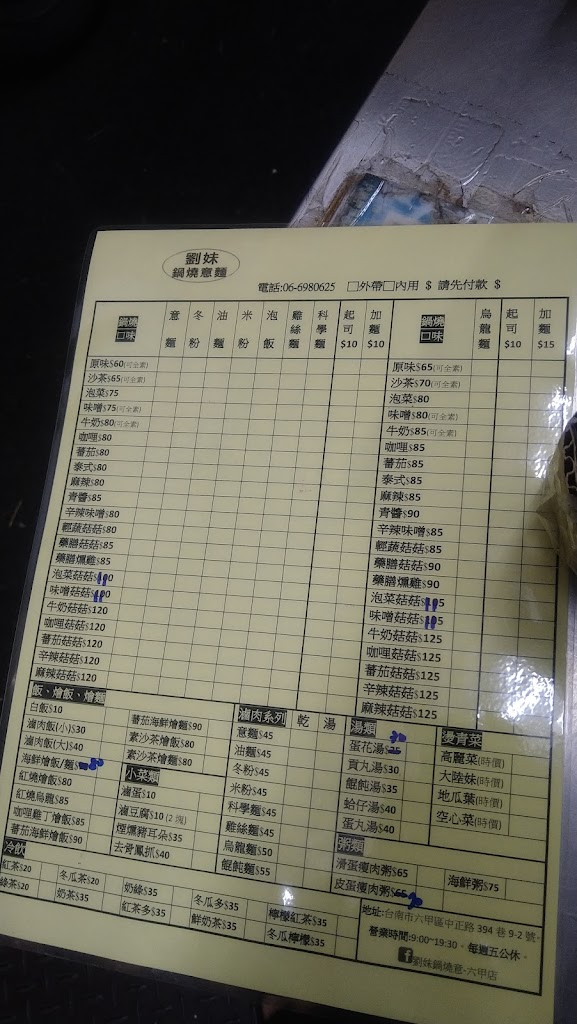 劉妹
鍋燒意麵
電話:06-6980625 □外帶□內用 $ 請先付款 $
鍋燒口味 意麵 冬粉 油麵 米粉 泡飯 雞絲麵 科學麵 起司$10 加麵$10
原味$60(可全素)
沙茶$65(可全素)
泡菜$75
味噌$75(可全素)
牛奶$80(可全素)
咖哩$80
蕃茄$80
泰式$80
麻辣$80
青醬$85
辛辣味噌$80
輕蔬菇菇$80
藥膳菇菇$85
藥膳燻雞$85
泡菜菇菇
味噌菇菇
牛奶菇菇$120
咖哩菇菇$120
蕃茄菇菇$120
辛辣菇菇$120
麻辣菇菇$120
鍋燒口味 烏龍麵 起司$10 加麵$15
原味$65(可全素)
沙茶$70(可全素)
泡菜$80
味噌$80(可全素)
牛奶$85(可全素)
咖哩$85
蕃茄$85
泰式$85
麻辣$85
青醬$90
辛辣味噌$85
輕蔬菇菇$85
藥膳菇菇$90
藥膳燻雞$90
泡菜菇菇
味噌菇菇
牛奶菇菇$125
咖哩菇菇$125
蕃茄菇菇$125
辛辣菇菇$125
麻辣菇菇$125
飯、燴飯、燴麵
白飯$10
滷肉飯(小)$30
滷肉飯(大)$40
海鮮燴飯/麵 80
紅燒燴飯$80
紅燒烏龍$85
咖哩雞丁燴飯$85
蕃茄海鮮燴飯$90
蕃茄海鮮燴麵$90
素沙茶燴飯$80
素沙茶燴麵$80
小菜類
滷蛋$10
滷豆腐$10 (2 塊)
煙燻豬耳朵$35
去骨鳳抓$40
滷肉系列 乾 湯
意麵$45
油麵$45
冬粉$45
米粉$45
科學麵$45
雞絲麵$45
烏龍麵$50
餛飩麵$55
湯類
蛋花湯$25 30
貢丸湯$30
餛飩湯$35
蛤仔湯$40
蛋丸湯$40
粥類
滑蛋瘦肉粥$65
皮蛋瘦肉粥$65 70
海鮮粥$75
燙青菜
高麗菜(時價)
大陸妹(時價)
地瓜葉(時價)
空心菜(時價)
冷飲
紅茶$20 冬瓜茶$20 奶綠$35 冬瓜多$35 檸檬紅茶$35
綠茶$20 奶茶$35 紅茶多$35 鮮奶茶$35 冬瓜檸檬$35
地址:台南市六甲區中正路 394 巷 9-2 號
營業時間:9:00~19:30。每週五公休。
f 劉妹鍋燒意-六甲店